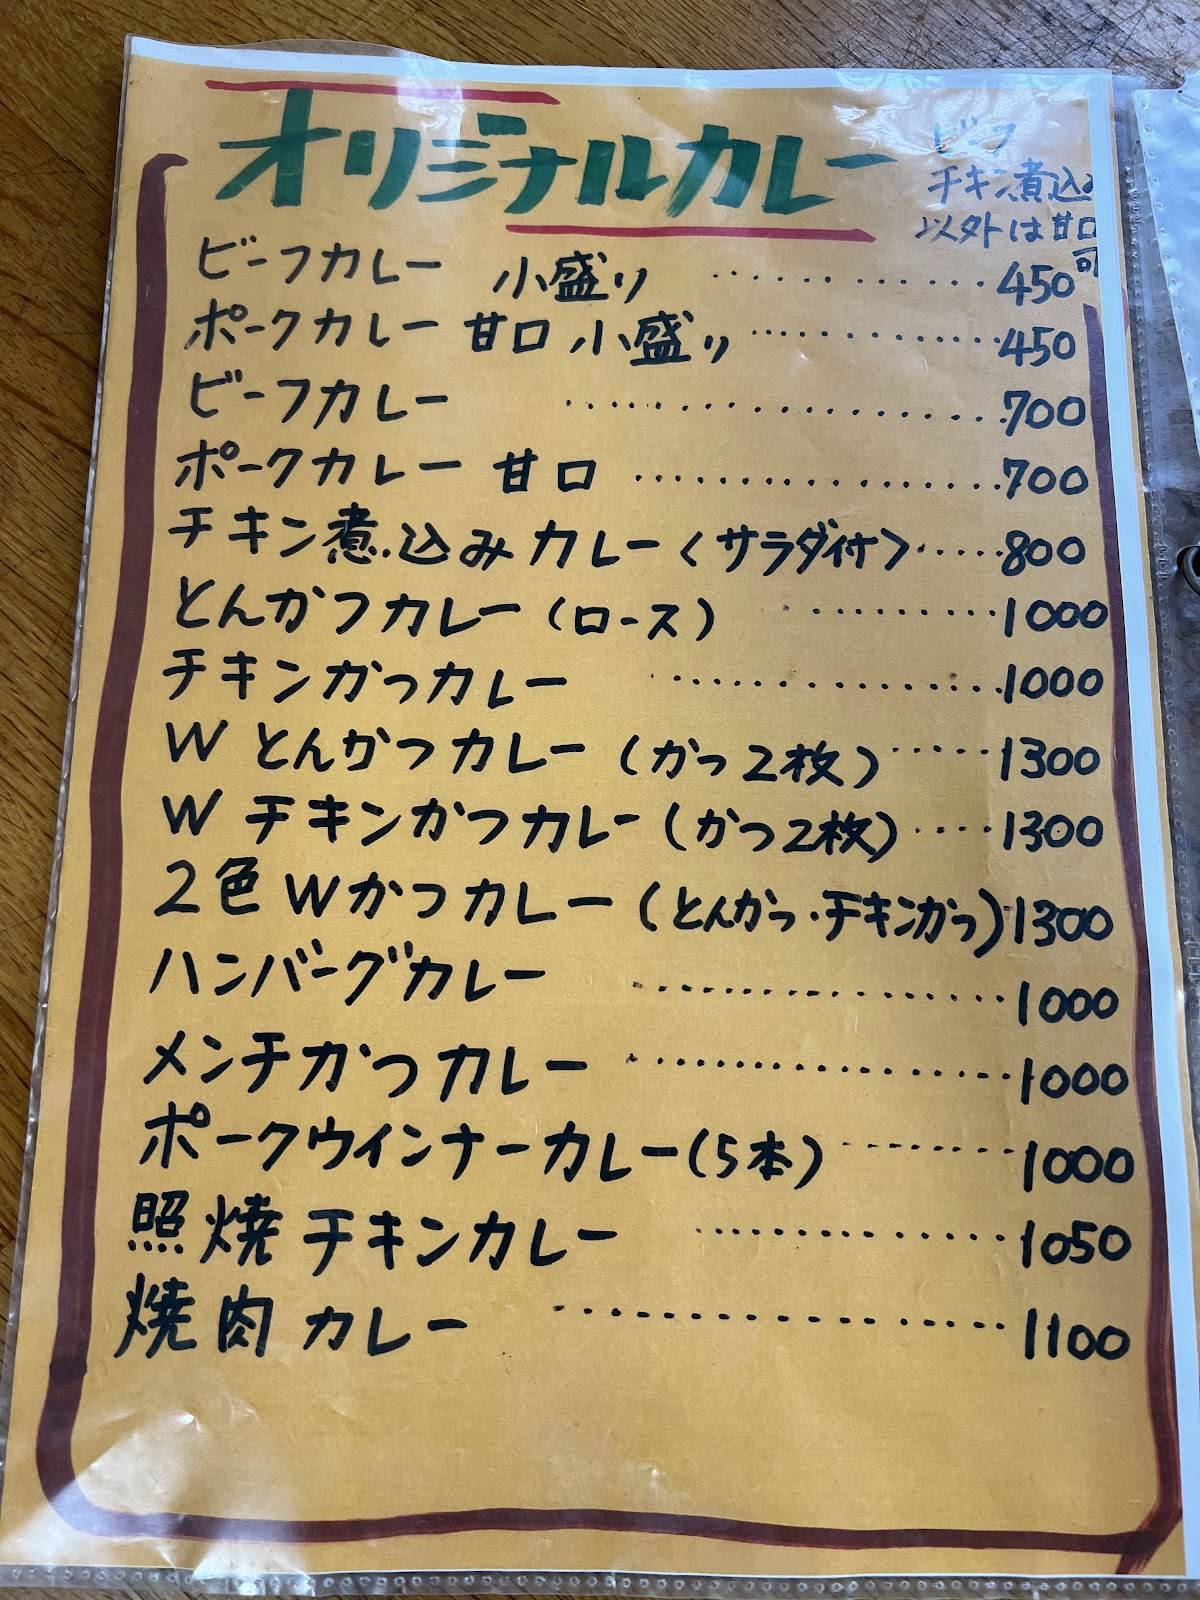 オリジナルカレー
ビーフ
チキン煮込み
以外は甘口
可
ビーフカレー 小盛り ............ 450
ポークカレー 甘口 小盛り ............ 450
ビーフカレー ................ 700
ポークカレー 甘口 ................ 700
チキン煮込みカレー<サラダ付> ..... 800
とんかつカレー(ロース) .......... 1000
チキンかつカレー ................ 1000
W とんかつカレー(かつ2枚) ...... 1300
W チキンかつカレー(かつ2枚) ..... 1300
2色Wかつカレー(とんかつ・チキンかつ) 1300
ハンバーグカレー ................ 1000
メンチかつカレー ................ 1000
ポークウインナーカレー(5本) ......... 1000
照焼チキンカレー ............. 1050
焼肉カレー ................ 1100